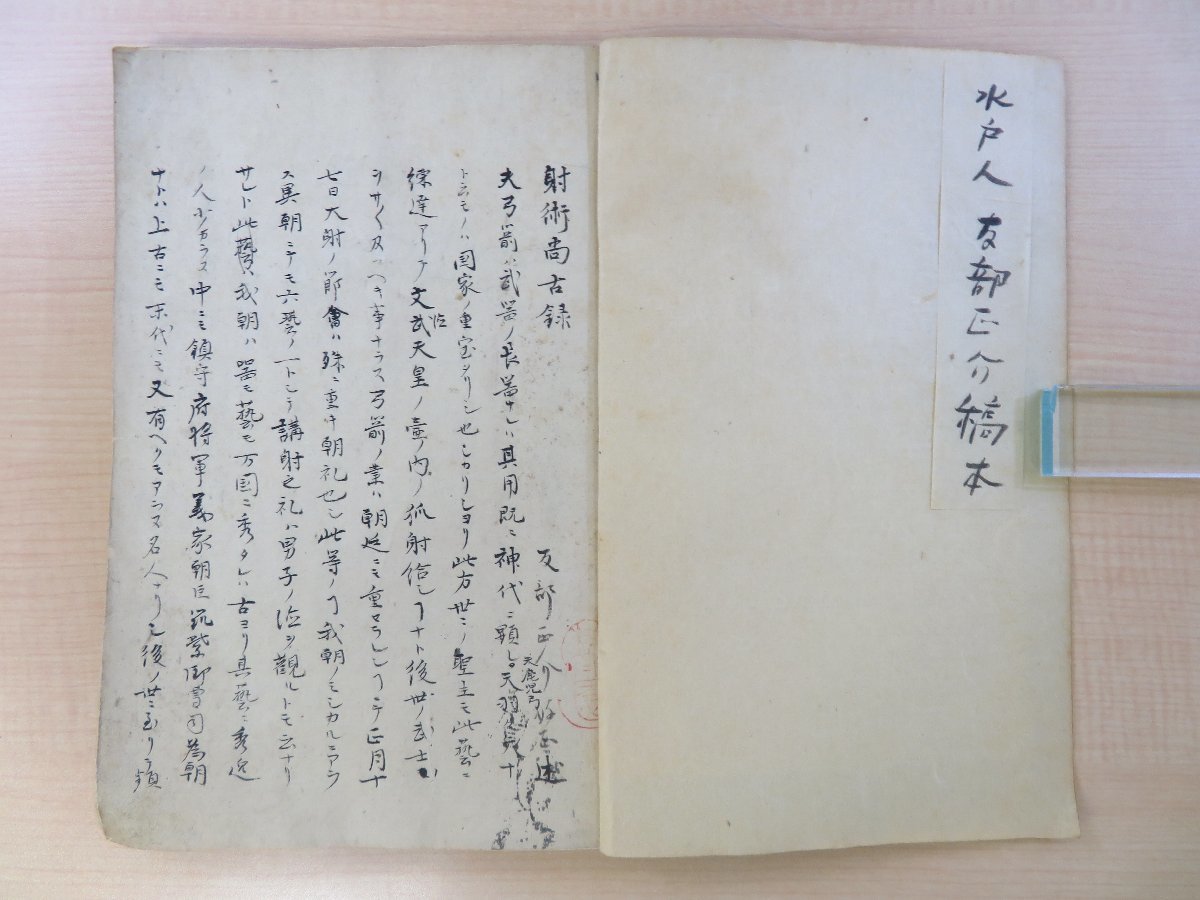 水戸人 友部正介稿本
射術尚古録
友部正ノ介好正述
夫弓箭ハ武器ノ長器ナレハ其用既ニ神代ニ顕レ天鹿児弓天羽々矢ナ
トニモノハ国家ノ重宝タリシ也シカリシヨリ此方世々ノ聖主モ此藝ニ
練達アリテ文武天皇ノ壷ノ内ノ狐射給シ丁ナト後世ノ武士ノ
シサク及フヘキ事ナラス弓箭ノ業ハ朝廷ニモ重セラレシ丁ニテ正月十
七日大射ノ節會ハ殊ニ重キ朝礼也シ此等ノ丁我朝ノミシカルニアラ
ス異朝ニテモ六藝ノ一トシテ講射之礼ハ男子ノ徳ヲ観ルトモ云ナリ
サレト此藝ハ我朝ハ器モ藝モ万国ニ秀タレハ古ヨリ其藝ニ秀逸
ノ人少カラス中ニモ鎮守府将軍義家朝臣筑紫御曹司為朝
ナトハ上古ニモ末代ニモ又有ヘクモアラヌ名人ナリシ後ノ世ニ至リテ頻